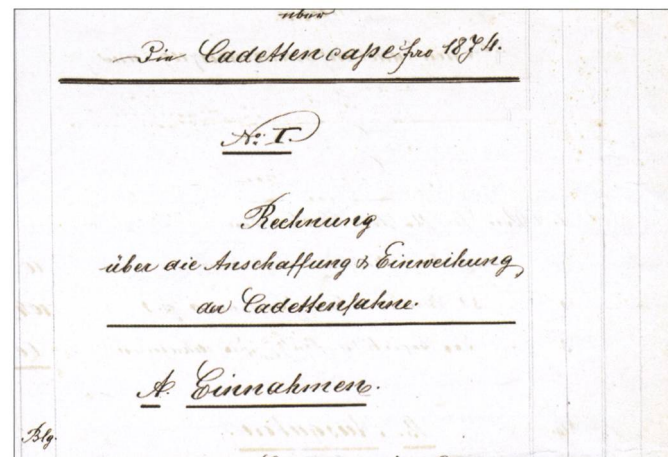 über
Die Cadettencasse pro 1874.
No. I.
Rechnung
über die Anschaffung & Einweihung
der Cadettenfahne.
A. Einnahmen.
Blg.